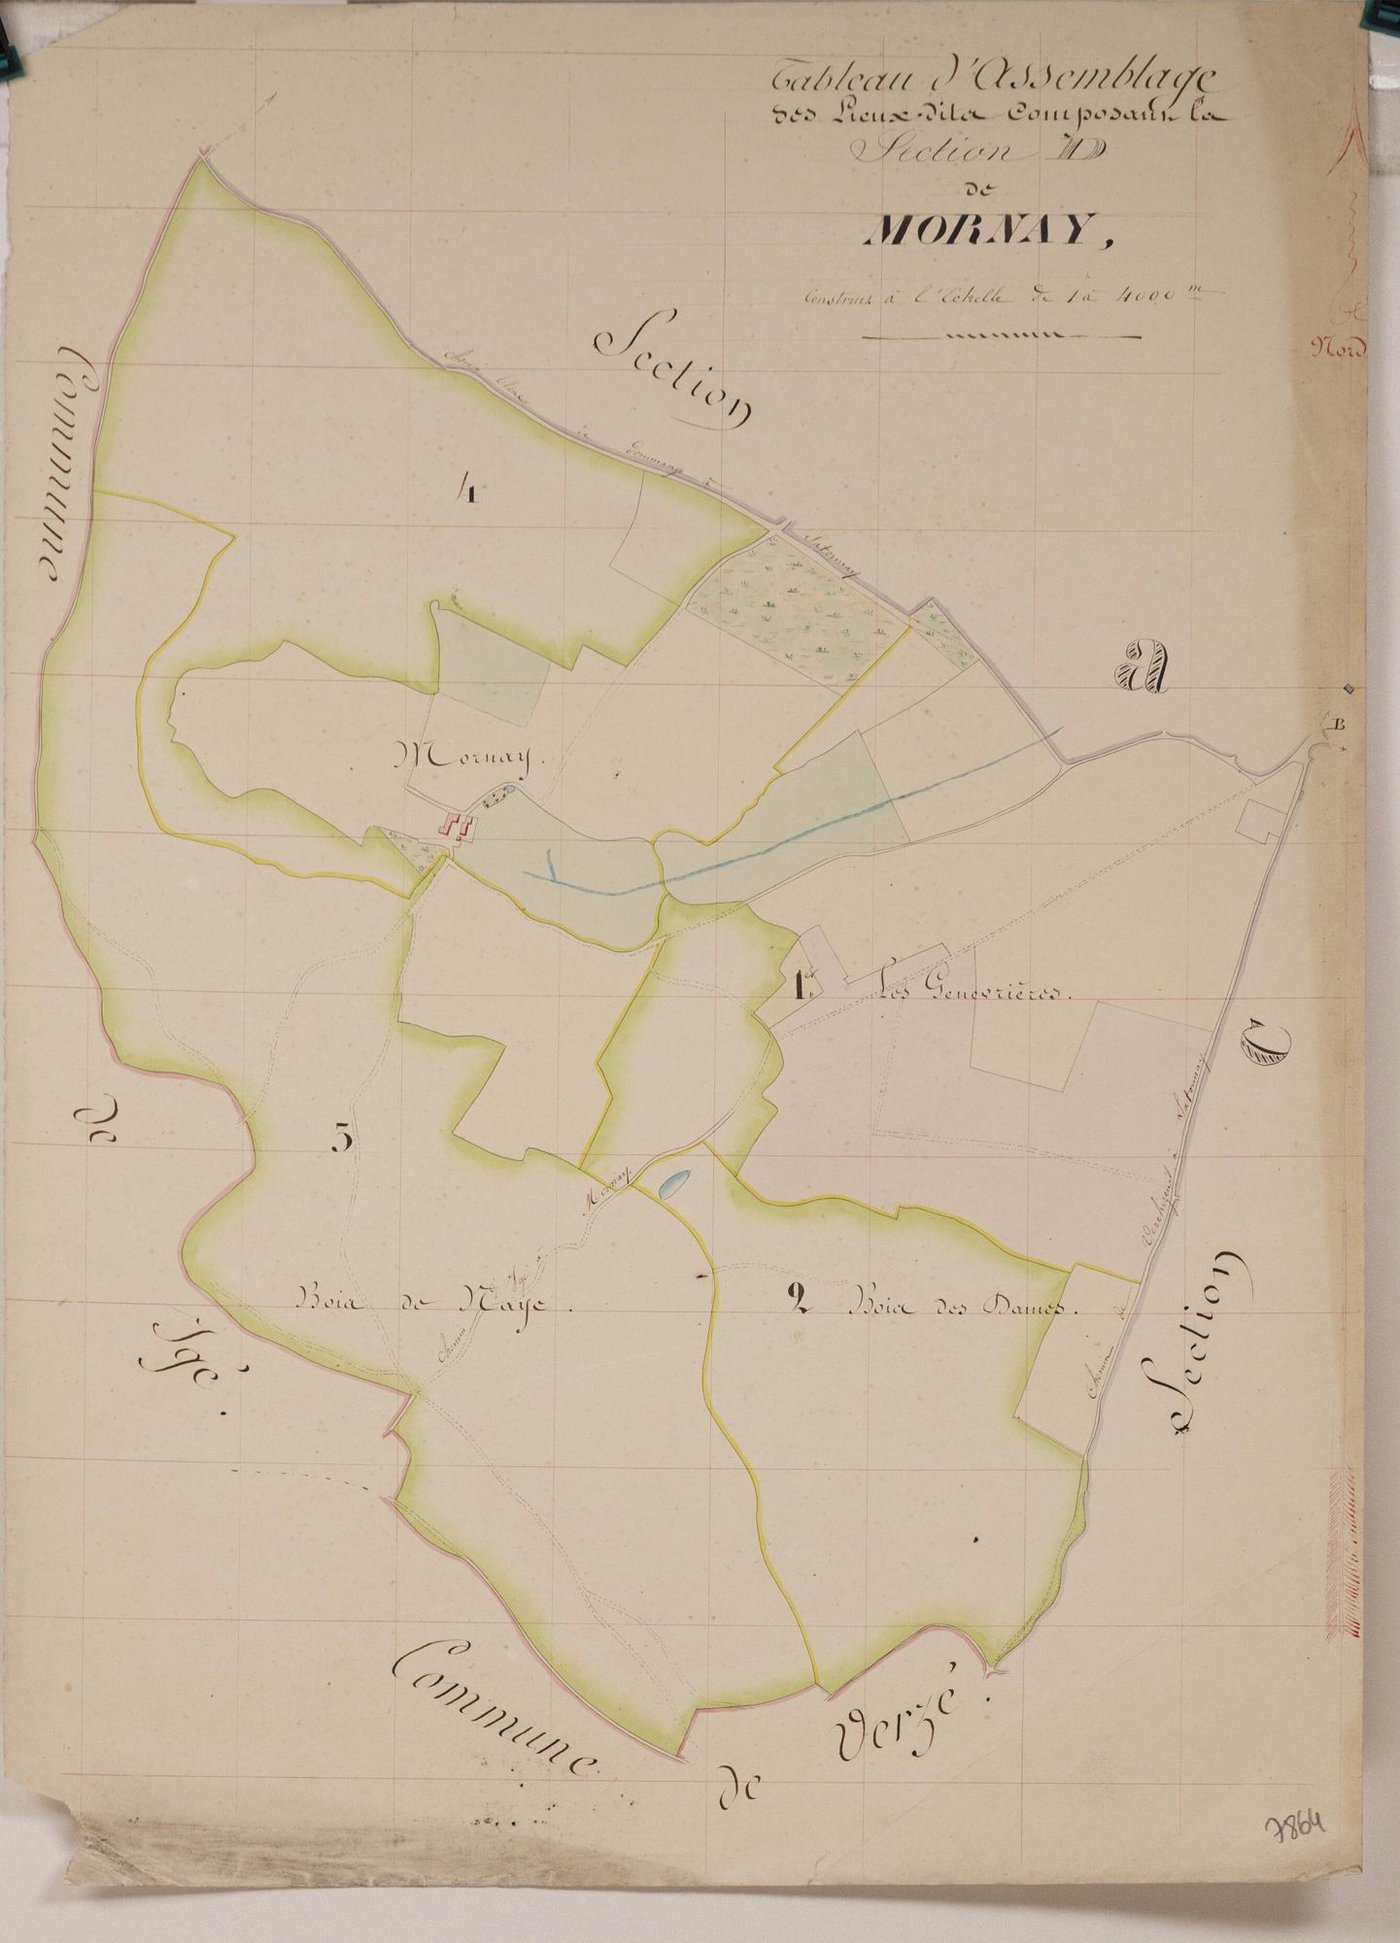 Tableau d'Assemblage
des Lieux-dits Composant la
Section D
de
MORNAY,
Construit à l'Echelle de 1 à 4000 m
Nord
Section
a
B
Commune
de
Igé.
Chemin
de
à
Satonnay
4
Mornay.
1er Les Genevrières.
C
Section
Chemin de Verchizeuil à Satonnay
3
Bois de Naye.
Chemin d'Igé à Mornay.
2 Bois des Dames.
Commune de Verzé.
7864